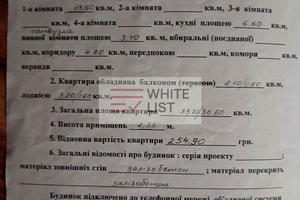 1-а кімната 18.60 кв.м, 2-а кімната кв.м, 3-я кімната
кв.м, 4-а кімната кв.м, кухні площею 6.60
санвузла
ванної кімнати площею 3.40 кв.м, вбиральні (поєднаної)
кв.м, коридору 4.80 кв.м, передпокою кв.м, комори кв.м,
веранди кв.м.
2. Квартира обладнана балконом (терасою) кв.м,
лоджією кв.м.
3. Загальна площа квартири кв.м.
4. Висота приміщень 2.55 м.
5. Відновна вартість квартири 254,90 грн.
6. Загальні відомості про будинок : серія проекту ;
матеріал зовнішніх стін залізобетон; матеріал перекрить
залізобетон
Будинок підключено до телефонної мережі,
WHITE
LIST